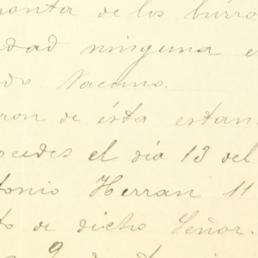 monta de los burros
dad ninguna e
do Vacuno.
ron de ésta estan
cedes el día 13 del
tonio Herran 11
to de dicho Señor.
9